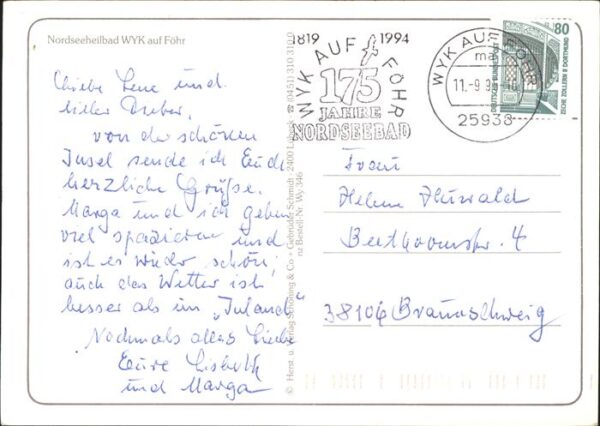 Nordseeheilbad WYK auf Föhr
Liebe Lene und
lieber
von der schönen
Insel sende ich Euch
herzliche Grüße.
Marga und ich gehen
viel spazieren und
ist es wieder schön,
auch das Wetter ist
besser als im „Inland"
Nochmals alles Liebe
Eure Lisbeth
und Marga
© Herst. u. Verlag Schöning & Co + Gebrüder Schmidt · 2400 Lübeck · ☎ (0451) 310 310
Bestell-Nr. Wy 346
1819 1994
WYK AUF FÖHR
175
JAHRE
NORDSEEBAD
WYK AUF FÖHR
ma
11.-9.
25938
80
DEUTSCHE BUNDESPOST
ZECHE ZOLLERN II DORTMUND
Frau
Helene
Beethovenstr. 4
38106 Braunschweig